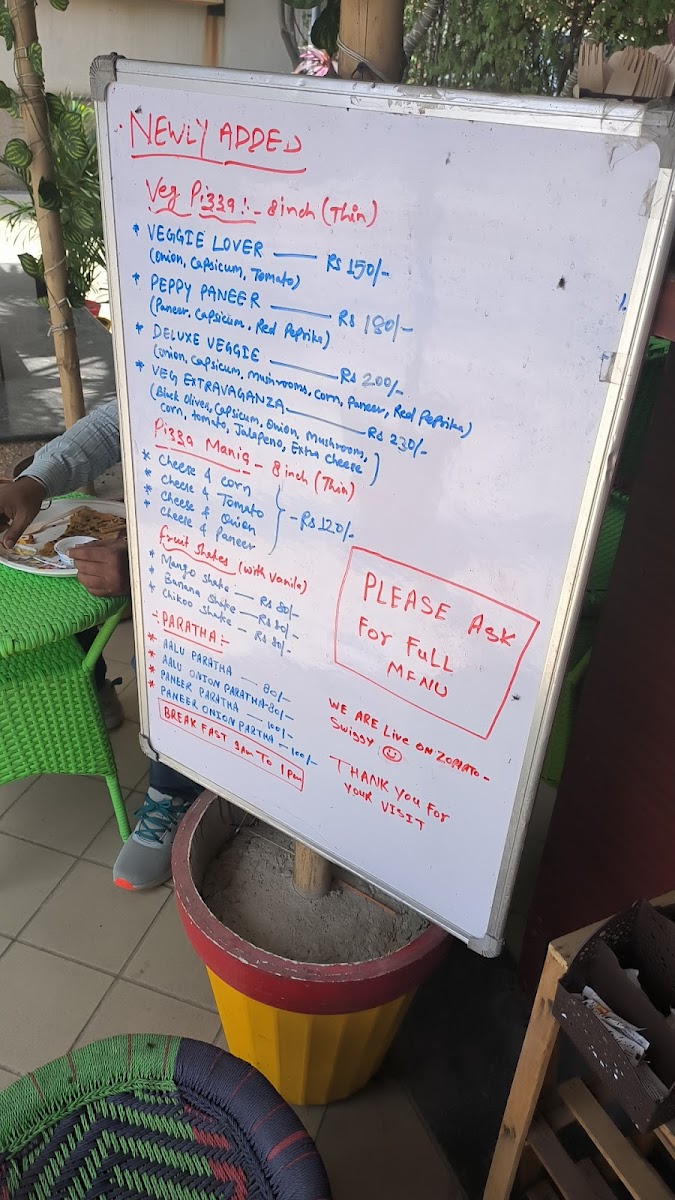 NEWLY ADDED
Veg Pizza :- 8 inch (Thin)
* VEGGIE LOVER — Rs 150/-
(Onion, Capsicum, Tomato)
* PEPPY PANEER — Rs 180/-
(Paneer. Capsicum, Red Peprika)
* DELUXE VEGGIE — Rs 200/-
(Onion, Capsicum, Mushrooms, corn, Paneer, Red Peprika)
* VEG EXTRAVAGANZA — Rs 230/-
(Black Olives, Capsicum, Onion, Mushroom,
corn, tomato, Jalapeno, Extra cheese)
Pizza Mania - 8 inch (Thin)
* Cheese & corn
* Cheese & Tomato
* Cheese & Onion
* Cheese & Paneer
- Rs 120/-
fruit shakes (with Vanila)
* Mango shake — Rs 80/-
* Banana Shake — Rs 80/-
* Chikoo Shake — Rs 80/-
:- PARATHA :-
* AALU PARATHA — 80/-
* AALU ONION PARATHA - 80/-
* PANEER PARATHA — 100/-
* PANEER ONION PARTHA - 100/-
BREAK FAST 9 Am To 1 Pm
PLEASE Ask
For Full
MENU
WE ARE Live ON ZOMATO -
Swiggy ☺
THANK YOU For
YOUR VISIT